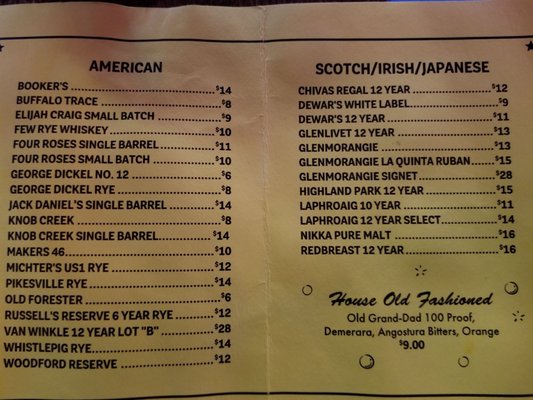 AMERICAN
BOOKER'S $14
BUFFALO TRACE $8
ELIJAH CRAIG SMALL BATCH $9
FEW RYE WHISKEY $10
FOUR ROSES SINGLE BARREL $11
FOUR ROSES SMALL BATCH $10
GEORGE DICKEL NO. 12 $6
GEORGE DICKEL RYE $8
JACK DANIEL'S SINGLE BARREL $14
KNOB CREEK $8
KNOB CREEK SINGLE BARREL $14
MAKERS 46 $10
MICHTER'S US1 RYE $12
PIKESVILLE RYE $14
OLD FORESTER $6
RUSSELL'S RESERVE 6 YEAR RYE $12
VAN WINKLE 12 YEAR LOT "B" $28
WHISTLEPIG RYE $14
WOODFORD RESERVE $12
SCOTCH/IRISH/JAPANESE
CHIVAS REGAL 12 YEAR $12
DEWAR'S WHITE LABEL $9
DEWAR'S 12 YEAR $11
GLENLIVET 12 YEAR $13
GLENMORANGIE $13
GLENMORANGIE LA QUINTA RUBAN $15
GLENMORANGIE SIGNET $28
HIGHLAND PARK 12 YEAR $15
LAPHROAIG 10 YEAR $11
LAPHROAIG 12 YEAR SELECT $14
NIKKA PURE MALT $16
REDBREAST 12 YEAR $16
House Old Fashioned
Old Grand-Dad 100 Proof,
Demerara, Angostura Bitters, Orange
$9.00